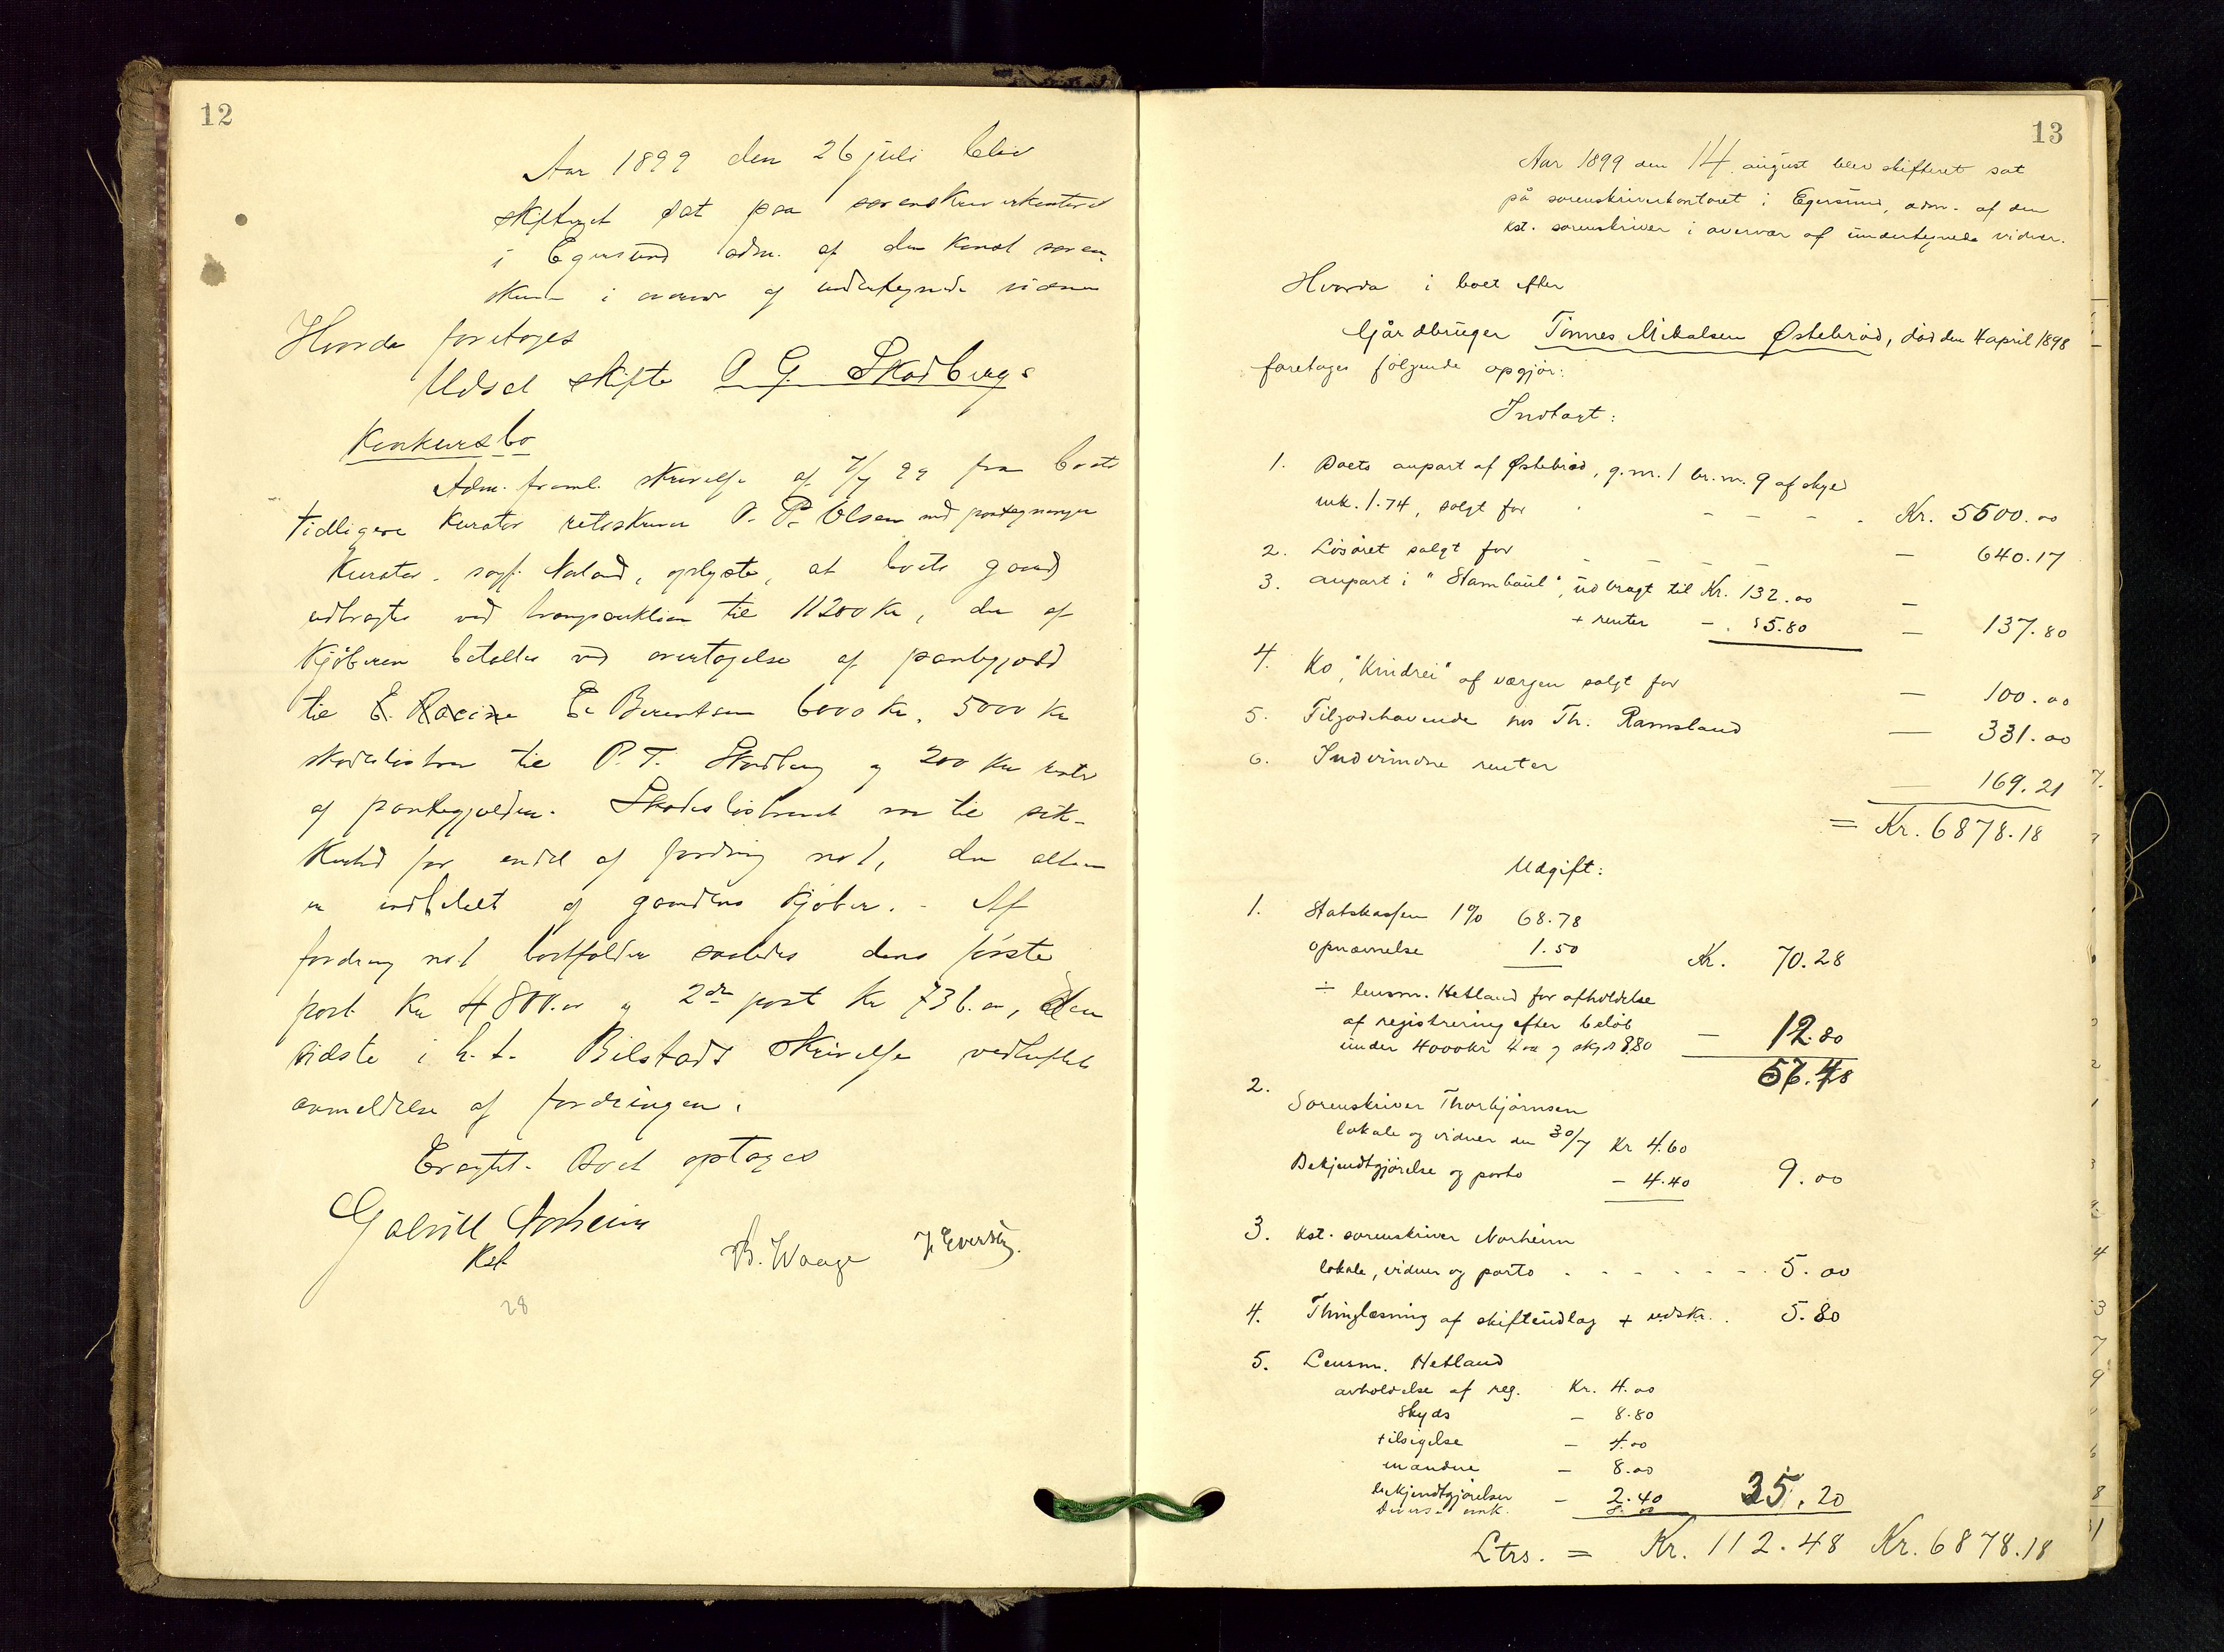 12
Aar 1899 den 26 juli blev
skifteret sat paa sorenskriverkontoret
i Egersund adm. af den konst soren
skriver i overvær af undertegnede vidner
Hvorda foretoges
Udsat skifte O G. Skadbergs
Konkursbo
Adm. freml. skrivelse af 7/7 99 fra boets
tidligere kurator retsskriver O. P. Olsen med paategninger
kurator, sagf. Naland, oplyste, at boets gaard
udbragtes ved tvangsauktion til 11200 Kr, der af
Kjøberen betaltes ved overtagelse af pantegjæld
til E. Racine E. Berentsen 6000 Kr, 5000 Kr
skadesløsbrev til P. T. Skadberg og 200 Kr rester
af pantegjælden. Skadesløsbrevet var til sik-
kerhed for endel af fordring no 1, der altsaa
er indbetalt af gaardens kjøber. - Af
fordring no 1 bortfalder saaledes dens første
post Kr 4800.00 og 2den post Kr 736.00, den
sidste i h. t. Bilstads skrivelse vedheftet
anmeldelse af fordringen.
Eragtet. Boet optages
Gabriel Norheim
Kst
B. Waage J. Evertsen.
28
13
Aar 1899 den 14. august blev skifteret sat
på sorenskriverkontoret i Egersund, adm. af den
kst. sorenskriver i overvær af undertegnede vidner.
Hvorda i boet efter
Gårdbruger Tønnes Mikalsen Østebrød, død den 4 april 1898
foretoges følgende opgjør:
Indtægt:
1. Boets anpart af Østebrød, g.nr. 1 br.nr. 9 af skyld
mk. 1.74, solgt for - - - - Kr. 5500.00
2. Løsøret solgt for - - - - — 640.17
3. anpart i "Stambaul", udbragt til Kr. 132.00 —
+ renter - . 5.80 — 137.80
4. Ko, "Kvindrei" af værgen solgt for — 100.00
5. Tilgodehavende hos Th. Ramsland — 331.00
6. Indvundne renter — 169.21
= Kr. 6878.18
Udgift:
1. Statskassen 1% 68.78
opnævnelse 1.50 Kr. 70.28
÷ lensm. Hetland for afholdelse
af registrering efter beløb
under 4000 kr 4.00 og skyds 8.80 — 12.80
57.48
2. Sorenskriver Thorbjørnsen
lokale og vidner den 30/7 Kr 4.60
Bekjendtgjørelse og porto - 4.40 9.00
3. Kst. sorenskriver Norheim
lokale, vidner og porto - - - - - - - 5.00
4. Thinglæsning af skifteudlæg + udskr. . 5.80
5. Lensm. Hetland
avholdelse af reg. Kr. 4.00
Skyds - 8.80
tilsigelse - 4.00
mændene - 8.00
bekjendtgjørelser - 2.40 35.20
Diverse omk. 8.00
Ltrs. = Kr. 112.48 Kr. 6878.18